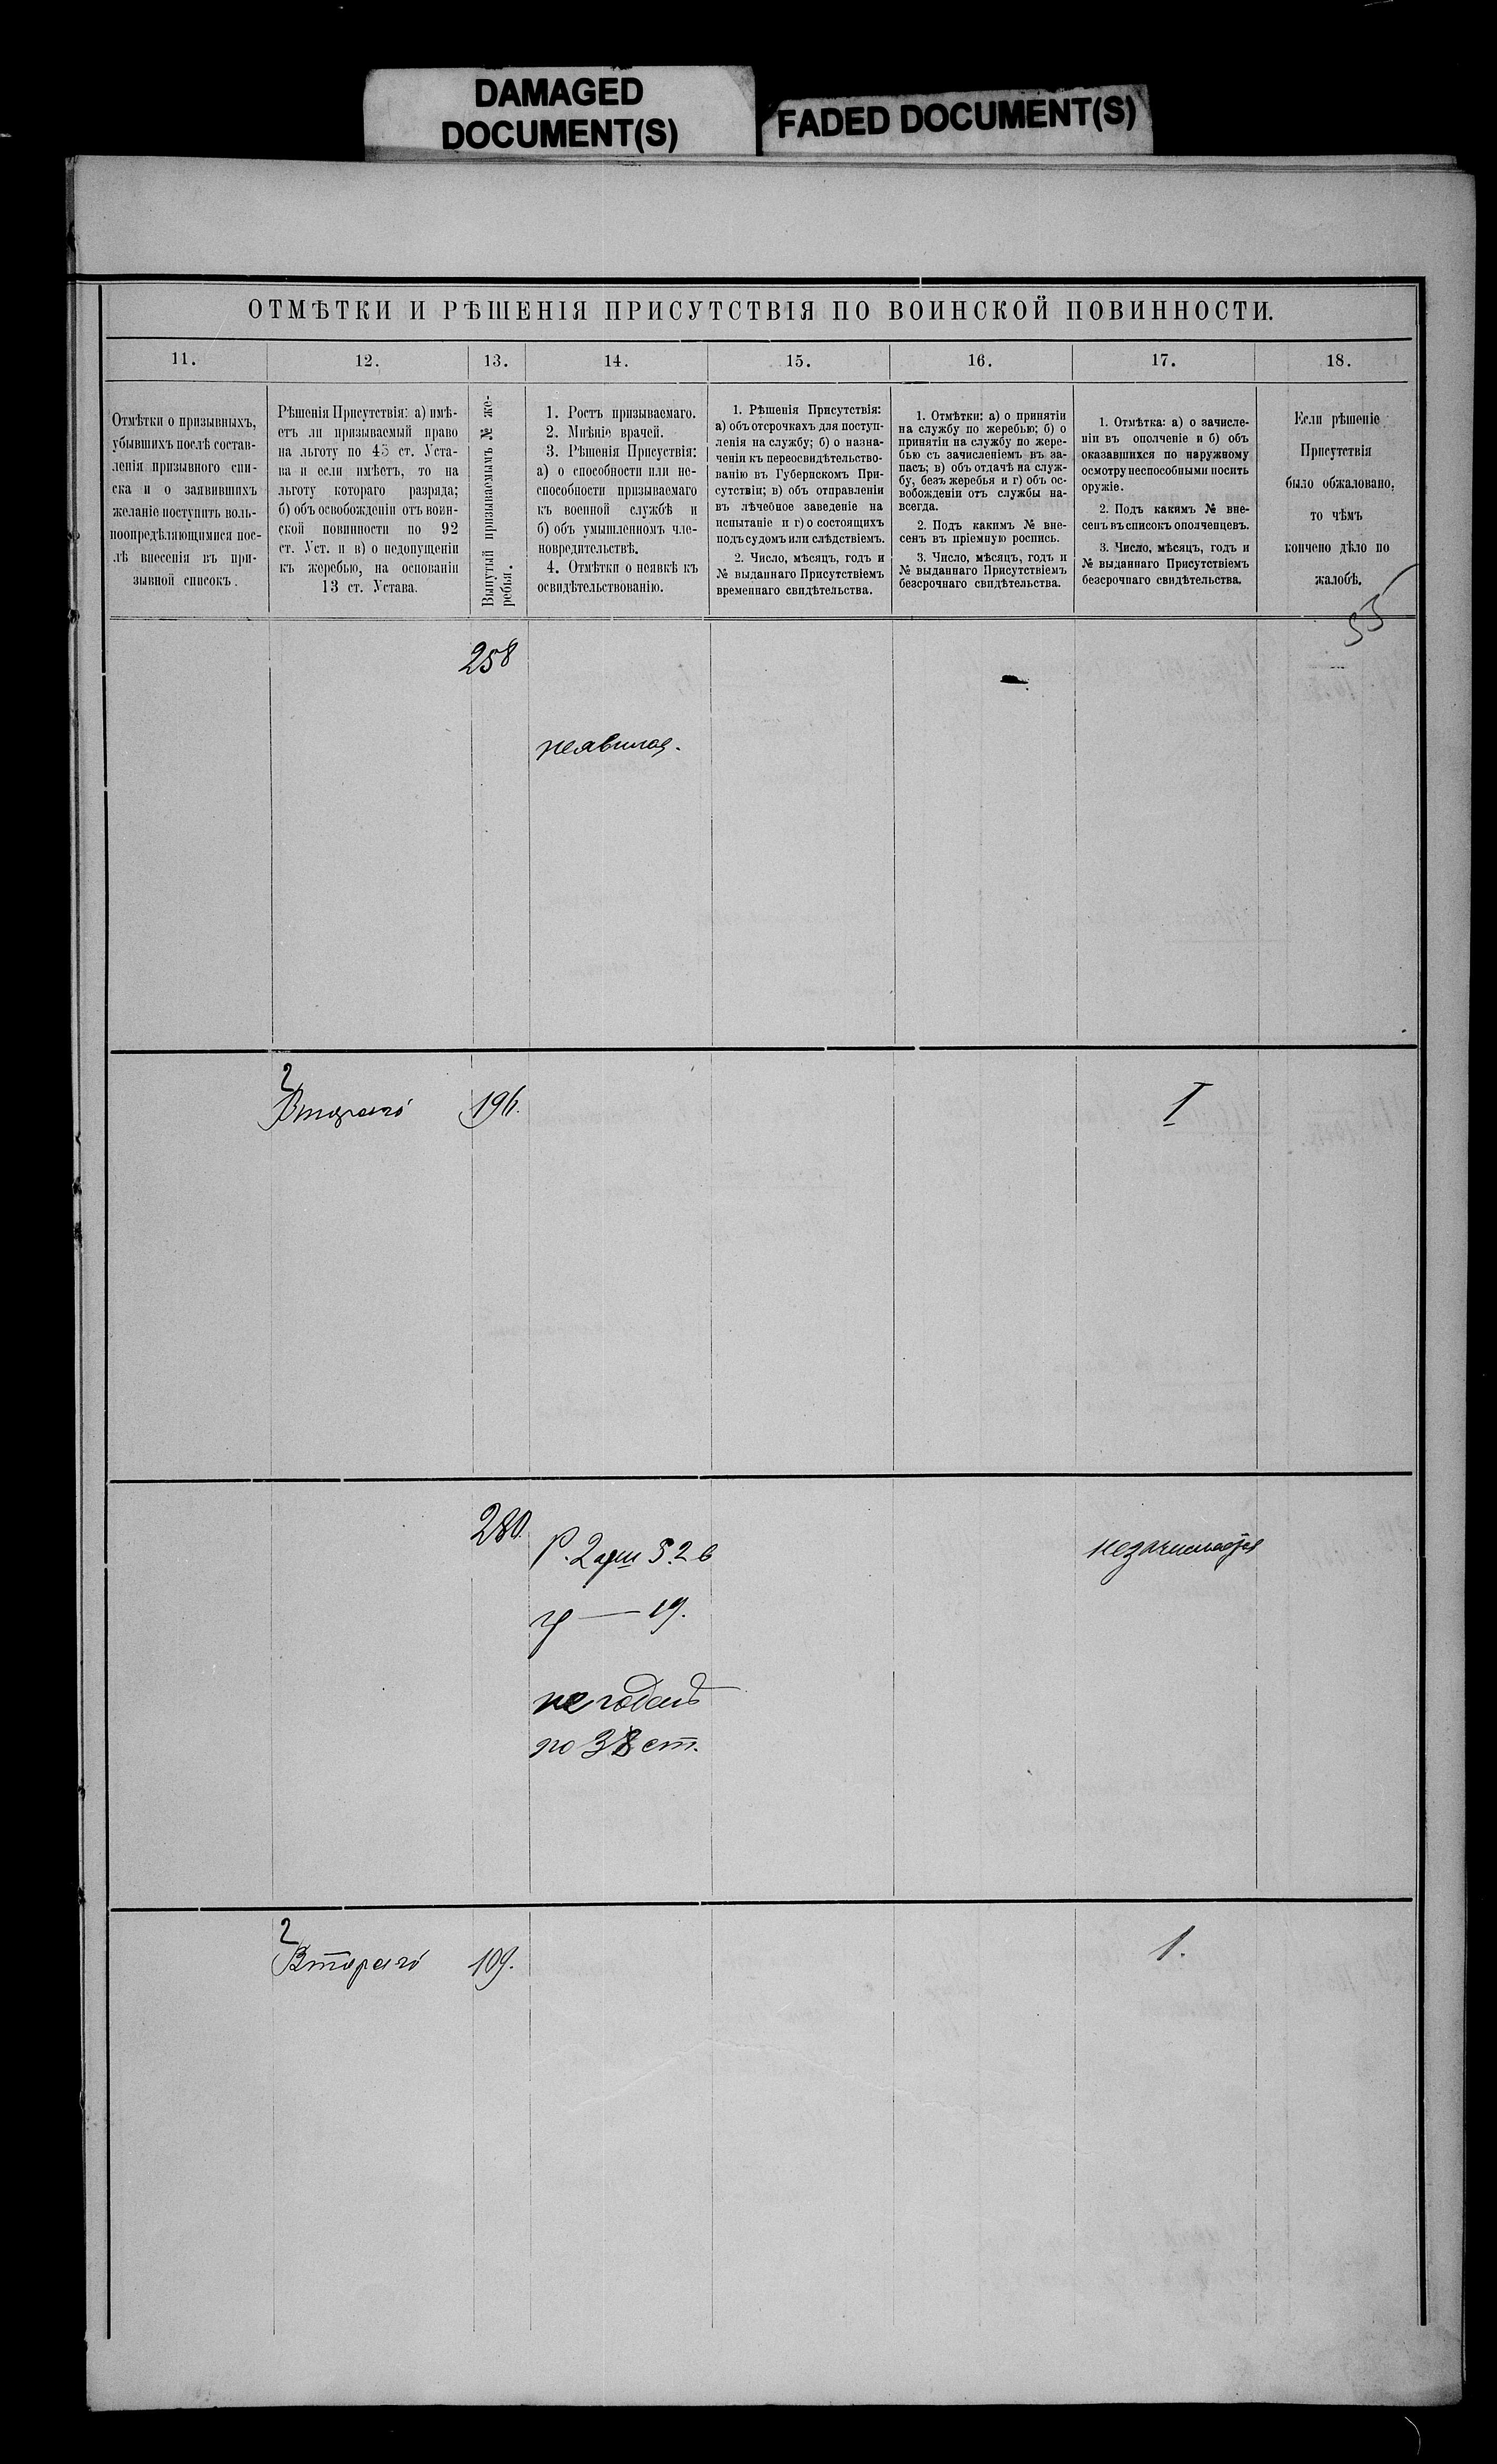 DAMAGED
DOCUMENT(S)
FADED DOCUMENT(S)
ОТМѢТКИ И РѢШЕНІЯ ПРИСУТСТВІЯ ПО ВОИНСКОЙ ПОВИННОСТИ.
11.
12.
13.
14.
15.
16.
17.
18.
Отмѣтки о призывныхъ,
убывшихъ послѣ состав-
ленія призывного спи-
ска и о заявившихъ
желаніе поступить воль-
ноопредѣляющимися пос-
лѣ внесенія въ при-
зывной списокъ.
Рѣшенія Присутствія: а) имѣ-
етъ ли призываемый право
на льготу по 45 ст. Уста-
ва и если имѣетъ, то на
льготу котораго разряда;
б) объ освобожденіи отъ воин-
ской повинности по 92
ст. Уст. и в) о недопущеніи
къ жеребью, на основаніи
13 ст. Устава.
Вынутый призываемымъ № же-
ребья.
1. Ростъ призываемаго.
2. Мнѣніе врачей.
3. Рѣшенія Присуствія:
а) о способности или не-
способности призываемаго
къ военной службѣ и
б) объ умышленномъ чле-
новредительствѣ.
4. Отмѣтки о неявкѣ къ
освидѣтельствованію.
1. Рѣшенія Присутствія:
а) объ отсрочкахъ для поступ-
ленія на службу; б) о назна-
ченіи къ переосвидѣтельство-
ванію въ Губернскомъ При-
сутствіи; в) объ отправленіи
въ лѣчебное заведеніе на
испытаніе и г) о состоящихъ
подъ судомъ или слѣдствіемъ.
2. Число, мѣсяцъ, годъ и
№ выданнаго Присутствіемъ
временнаго свидѣтельства.
1. Отмѣтки: а) о принятіи
на службу по жеребью; б) о
принятіи на службу по жере-
бью съ зачисленіемъ въ за-
пасъ; в) объ отдачѣ на служ-
бу, безъ жеребья и г) объ ос-
вобожденіи отъ службы на-
всегда.
2. Подъ какимъ № вне-
сенъ въ пріемную роспись.
3. Число, мѣсяцъ, годъ и
№ выданнаго Присутствіемъ
безсрочнаго свидѣтельства.
1. Отмѣтка: а) о зачисле-
ніи въ ополченіе и б) объ
оказавшихся по наружному
осмотру неспособными носить
оружіе.
2. Подъ какимъ № вне-
сенъ въ списокъ ополченцевъ.
3. Число, мѣсяцъ, годъ и
№ выданнаго Присутствіемъ
безсрочнаго свидѣтельства.
Если рѣшеніе
Присутствія
было обжаловано,
то чѣмъ
кончено дѣло по
жалобѣ.
55
258
неявился.
2
Втораго
196.
I
280.
Р. 2 арш 5.2 в
19.
не годенъ
по 38 ст.
незачисляется
2
Втораго
109.
1.